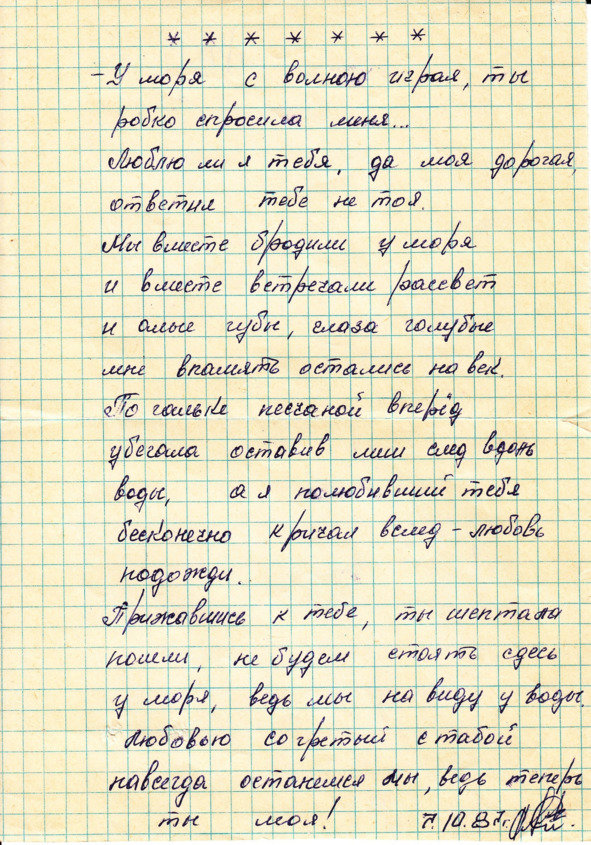 * * * * * * *
– У моря с волною играя, ты
робко спросила меня...
Люблю ли я тебя, да моя дорогая,
ответил тебе не тоя.
Мы вместе бродили у моря
и вместе встречали рассвет
и алые губы, глаза голубые
мне впамять остались на век.
По гальке песчаной вперёд
убегала оставив лиш след вдоль
воды, а я полюбивший тебя
бесконечно кричал вслед – любовь
подожди.
Прижавшись к тебе, ты шептала
пошли, не будем стоять сдесь
у моря, ведь мы на виду у воды.
Любовью согретый с табой
навсегда останемся мы, ведь теперь
ты моя! 7.10.87г.